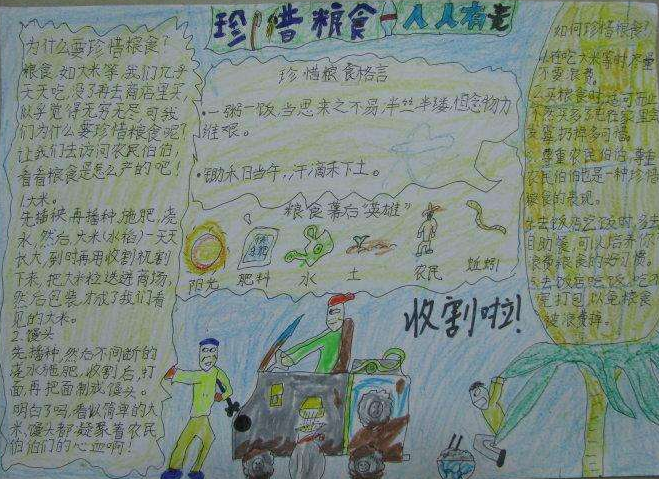 珍惜粮食—人人有责
为什么要珍惜粮食?
粮食,如大米等,我们几乎
天天吃,没了再去商店里买,
似乎觉得无穷无尽,可我
们为什么要珍惜粮食呢?
让我们去访问农民伯伯,
看看粮食是怎么产的吧!
1.大米。
先插秧,再播种,施肥,浇
水,然后,大米(水稻)一天天
长大,到时再用收割机割
下来,把大米粒送进商场,
然后包装,才成了我们看
见的大米。
2.馒头
先播种,然后不间断的
浇水施肥,收割后,打
面,再把面制成馒头。
明白了吗,看似简单的大
米,馒头都凝聚着农民
伯伯们的心血啊!
珍惜粮食格言
·一粥一饭,当思来之不易;半丝半缕,恒念物力
维艰。
·锄禾日当午,汗滴禾下土。
粮食幕后"英雄"
阳光
肥料
水
土
农民
蚯蚓
收割啦!
如何珍惜粮食?
1.在吃大米等时,尽量
不要浪费。
2.买粮食时,适可而止,
不然买多了
3.尊重农民伯伯,尊重
农民伯伯也是一种珍惜
粮食的表现。
4.去饭店吃饭时,多去
自助餐,可以培养你
的好习惯。
5.去饭店吃饭,吃不
完打包,可以免粮食
被浪费掉。